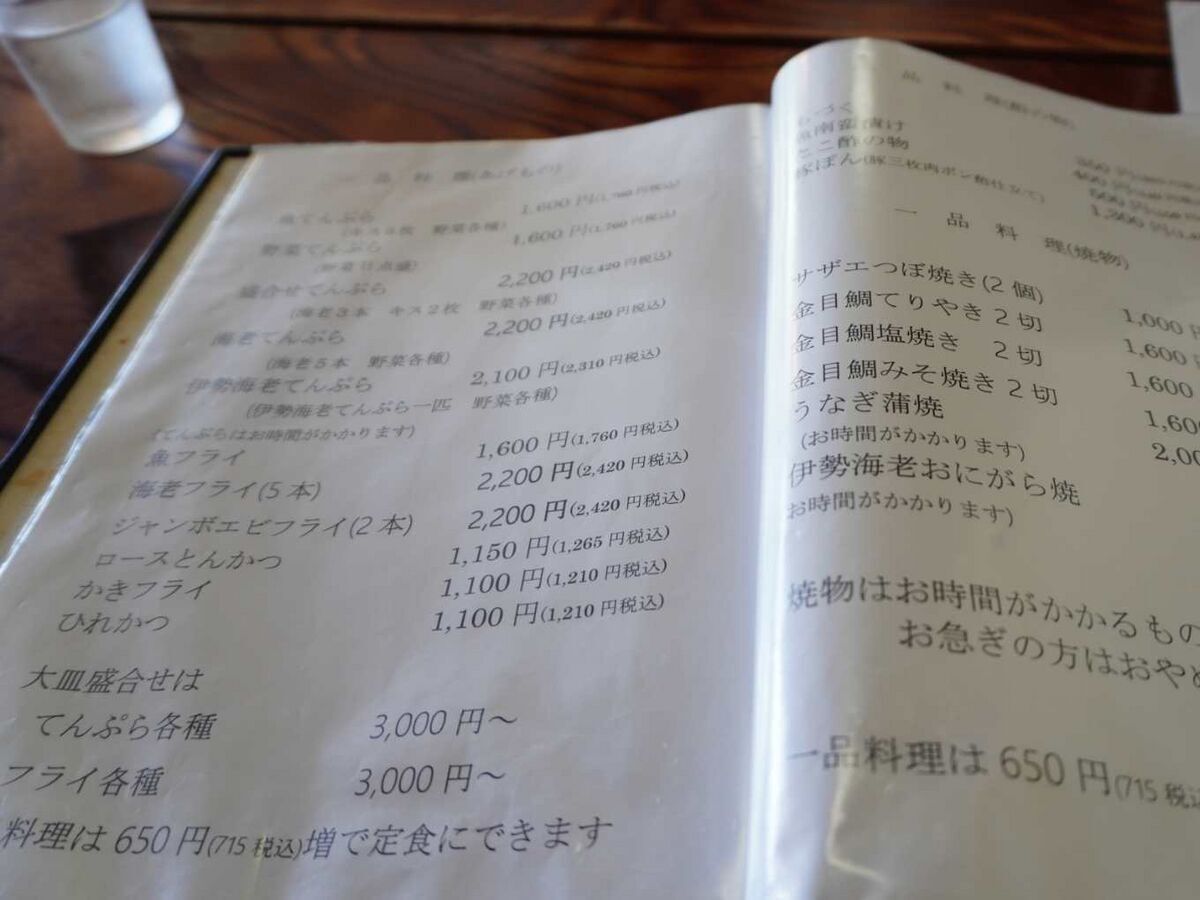 一品料理(あげもの)
魚てんぷら 1,600円(1,760円税込)
(キス3枚 野菜各種)
野菜てんぷら 1,600円(1,760円税込)
盛合せてんぷら 2,200円(2,420円税込)
(海老3本 キス2枚 野菜各種)
海老てんぷら 2,200円(2,420円税込)
(海老5本 野菜各種)
伊勢海老てんぷら 2,100円(2,310円税込)
(伊勢海老てんぷら一匹 野菜各種)
(てんぷらはお時間がかかります)
魚フライ 1,600円(1,760円税込)
海老フライ(5本) 2,200円(2,420円税込)
ジャンボエビフライ(2本) 2,200円(2,420円税込)
ロースとんかつ 1,150円(1,265円税込)
かきフライ 1,100円(1,210円税込)
ひれかつ 1,100円(1,210円税込)
大皿盛合せは
てんぷら各種 3,000円〜
フライ各種 3,000円〜
料理は650円(715税込)増で定食にできます
一品料理(酢の物)
魚南蛮漬け
酢の物
豚ぽん(豚三枚肉ポン酢仕立て)
一品料理(焼物)
サザエつぼ焼き(2個) 1,000円
金目鯛てりやき2切 1,600
金目鯛塩焼き 2切 1,600
金目鯛みそ焼き2切 1,600
うなぎ蒲焼 2,00
(お時間がかかります)
伊勢海老おにがら焼
お時間がかかります)
焼物はお時間がかかるもの
お急ぎの方はおやめ
一品料理は650円(715税込